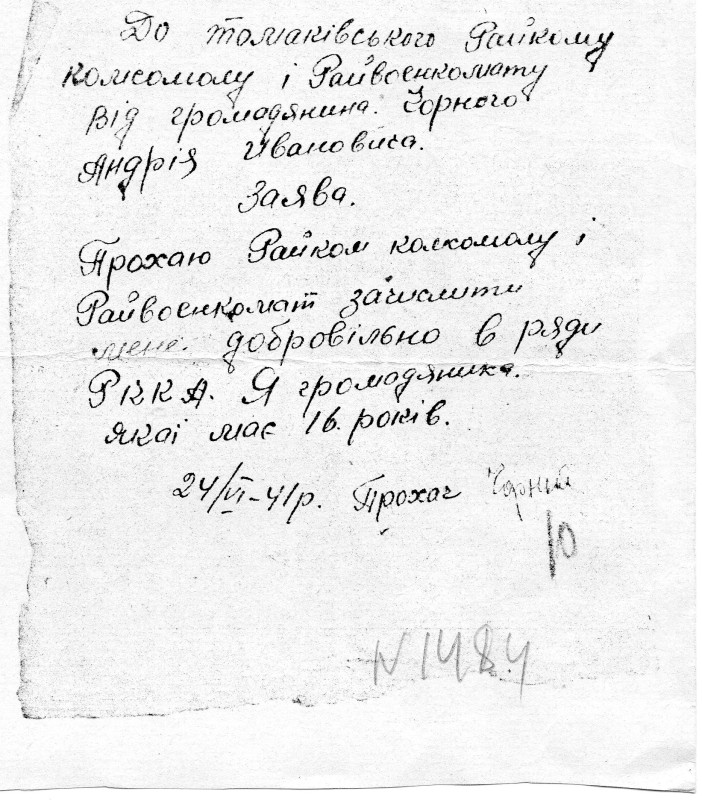 До томаківського Райкому
комсомолу і Райвоєнкомату
від громадянина. Чорного
Андрія Ивановича.
Заява.
Прохаю Райком колкомолу і
Райвоєнкомат зачислити
мене. добровільно в ряди
РККА. Я громадяника.
якаї має 16. років.
24/VI-41р. Прохач Чорний
10
N1484